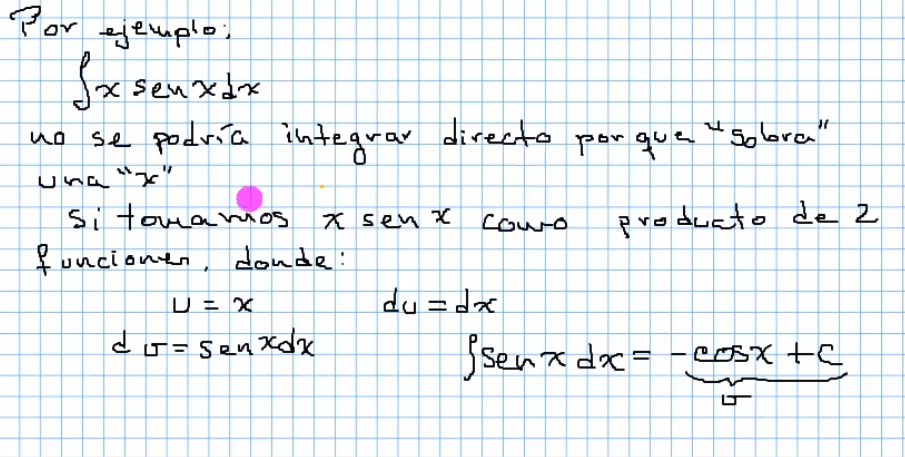 Por ejemplo:
∫x sen x dx
no se podría integrar directo por que "sobra"
una "x"
Si tomamos x sen x como producto de 2
funciones, donde:
u = x du = dx
dv = sen x dx ∫sen x dx = -cos x + C
v